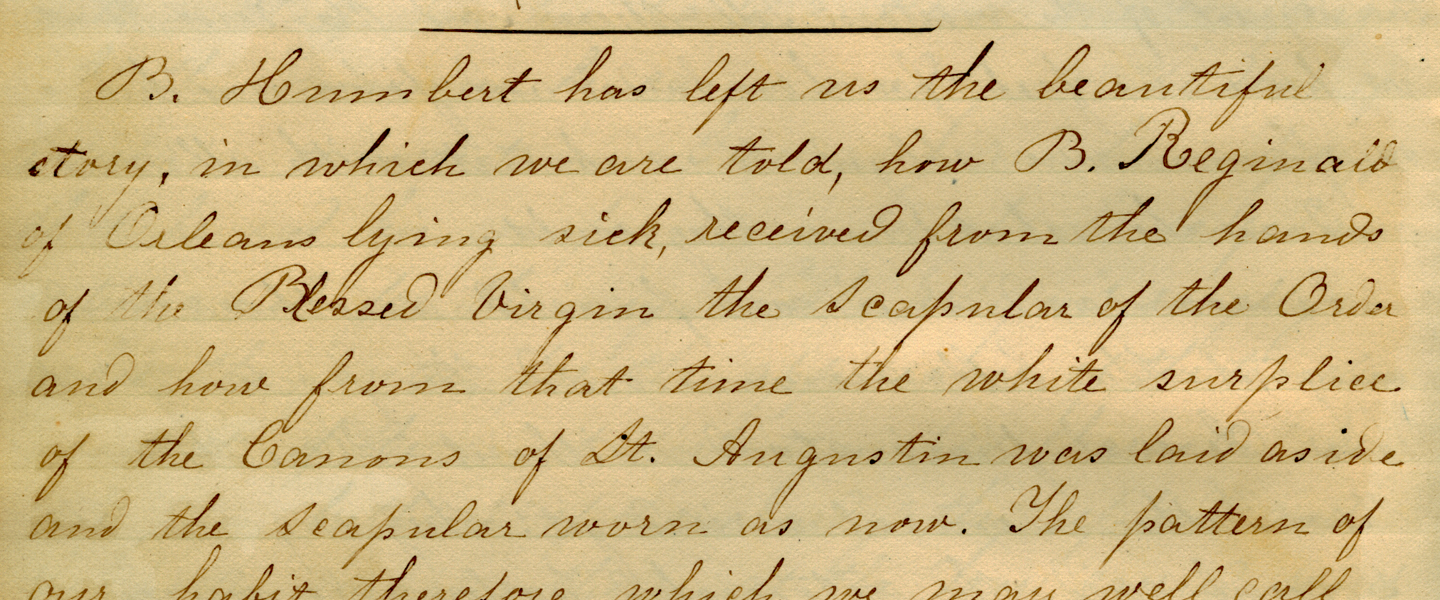 B. Humbert has left us the beautiful
story, in which we are told, how B. Reginald
of Orleans lying sick, received from the hands
of the Blessed Virgin the Scapular of the Order
and how from that time the white surplice
of the Canons of St. Augustin was laid aside
and the Scapular worn as now. The pattern of
our habit therefore which we may well call